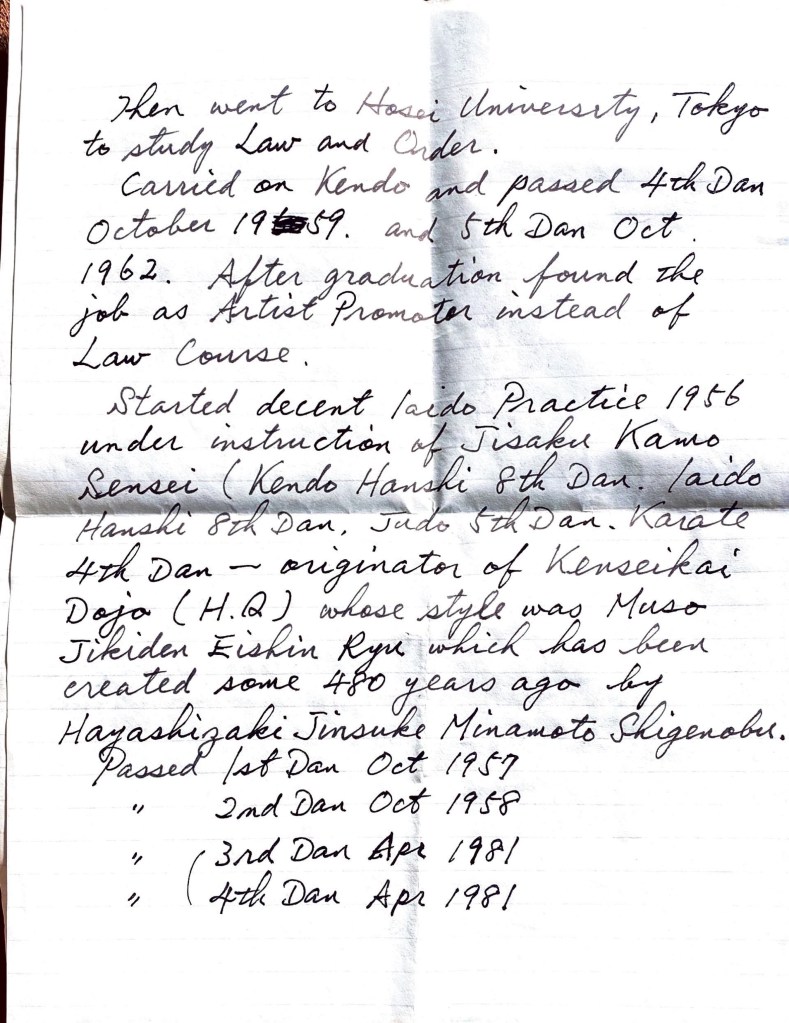 Then went to Hosei University, Tokyo
to study Law and Order.
Carried on Kendo and passed 4th Dan
October 1959. and 5th Dan Oct.
1962. After graduation found the
job as Artist Promotor instead of
Law Course.
Started decent Iaido Practice 1956
under instruction of Jisaku Kamo
Sensei (Kendo Hanshi 8th Dan. Iaido
Hanshi 8th Dan, Judo 5th Dan. Karate
4th Dan – originator of Kenseikai
Dojo (H.Q) whose style was Muso
Jikiden Eishin Ryu which has been
created some 480 years ago by
Hayashizaki Jinsuke Minamoto Shigenobu.
Passed 1st Dan Oct 1957
〃 2nd Dan Oct 1958
〃 (3rd Dan Apr 1981
〃 (4th Dan Apr 1981